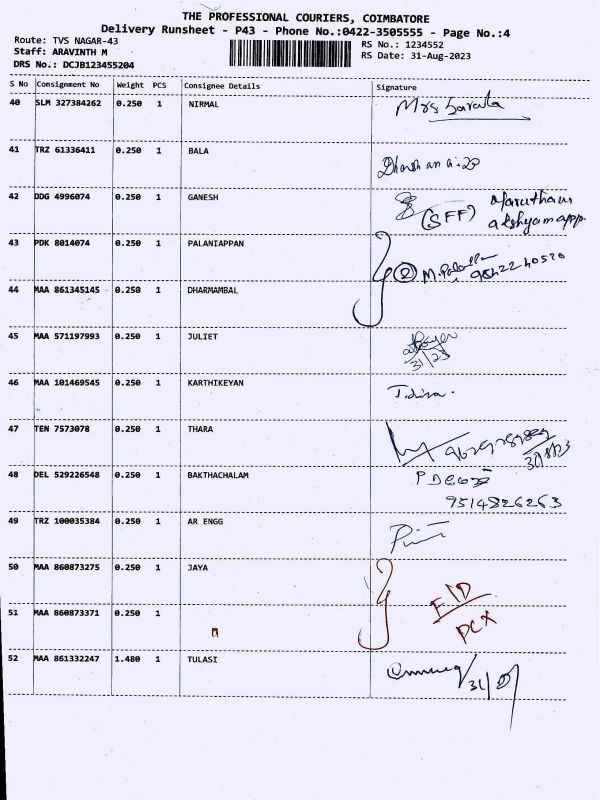 THE PROFESSIONAL COURIERS, COIMBATORE
Delivery Runsheet - P43 - Phone No.:0422-3505555 - Page No.:4
Route: TVS NAGAR-43
RS No.: 1234552
Staff: ARAVINTH M
RS Date: 31-Aug-2023
DRS No.: DCJB123455204
S No Consignment No Weight PCS Consignee Details Signature
40 SLM 327384262 0.250 1 NIRMAL Mrs Sarala
41 TRZ 61336411 0.250 1 BALA
42 DDG 4996074 0.250 1 GANESH (SFF)
43 PDK 8014074 0.250 1 PALANIAPPAN 2
44 MAA 861345145 0.250 1 DHARMAMBAL
45 MAA 571197993 0.250 1 JULIET 31/23
46 MAA 101469545 0.250 1 KARTHIKEYAN
47 TEN 7573078 0.250 1 THARA 31/8/23
48 DEL 529226548 0.250 1 BAKTHACHALAM
9514826263
49 TRZ 100035384 0.250 1 AR ENGG
50 MAA 860873275 0.250 1 JAYA
51 MAA 860873371 0.250 1
52 MAA 861332247 1.480 1 TULASI